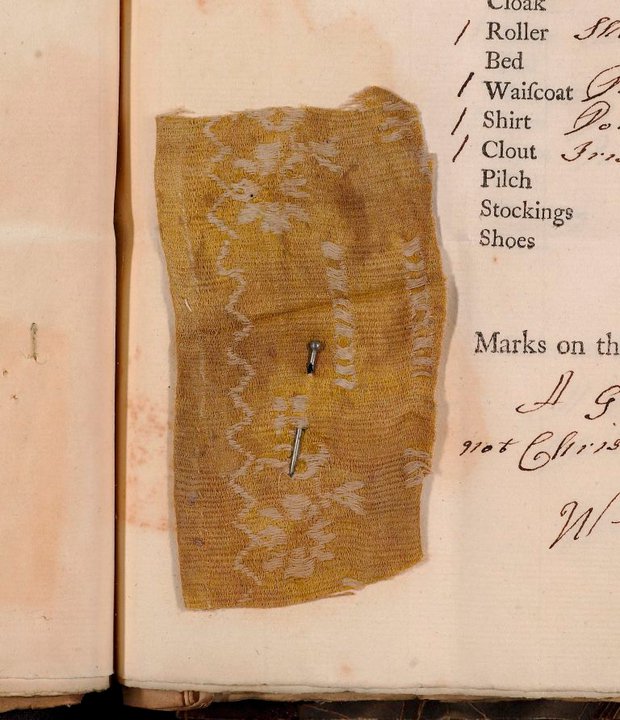 Cloak
/ Roller
Bed
/ Waiſcoat
/ Shirt
/ Clout
Pilch
Stockings
Shoes
Marks on th
A G
not Chris